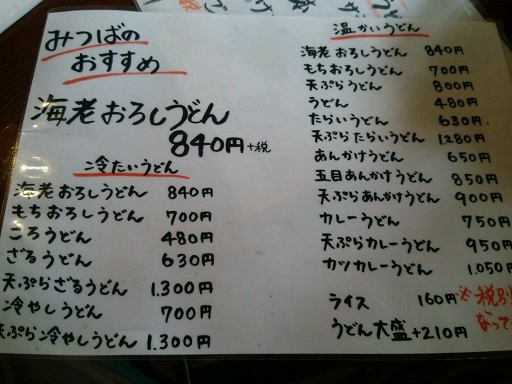 みつばの
おすすめ
海老おろしうどん
840円+税
冷たいうどん
海老おろしうどん 840円
もちおろしうどん 700円
ころうどん 480円
ざるうどん 630円
天ぷらざるうどん 1.300円
冷やしうどん 700円
天ぷら冷やしうどん 1.300円
温かいうどん
海老おろしうどん 840円
もちおろしうどん 700円
天ぷらうどん 800円
うどん 480円
たらいうどん 630円
天ぷらたらいうどん 1280円
あんかけうどん 650円
五目あんかけうどん 850円
天ぷらあんかけうどん 900円
カレーうどん 750円
天ぷらカレーうどん 950円
カツカレーうどん 1.050円
ライス 160円
うどん大盛+210円
※税別
なって